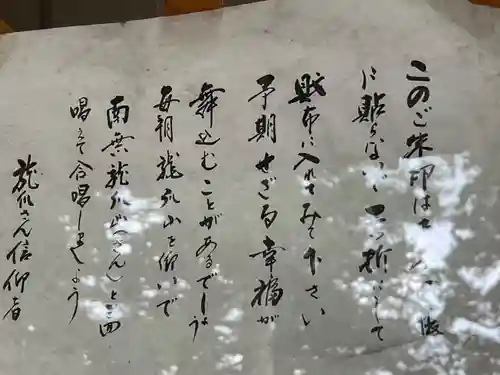 このご朱印は
に貼らないで二つ折にして
財布に入れてみて下さい
予期せざる幸福が
舞込むことがあるでしょう
毎朝龍爪山を仰いで
南無龍爪山(さん)と三回
唱えて合唱しましょう
龍爪さん信仰者